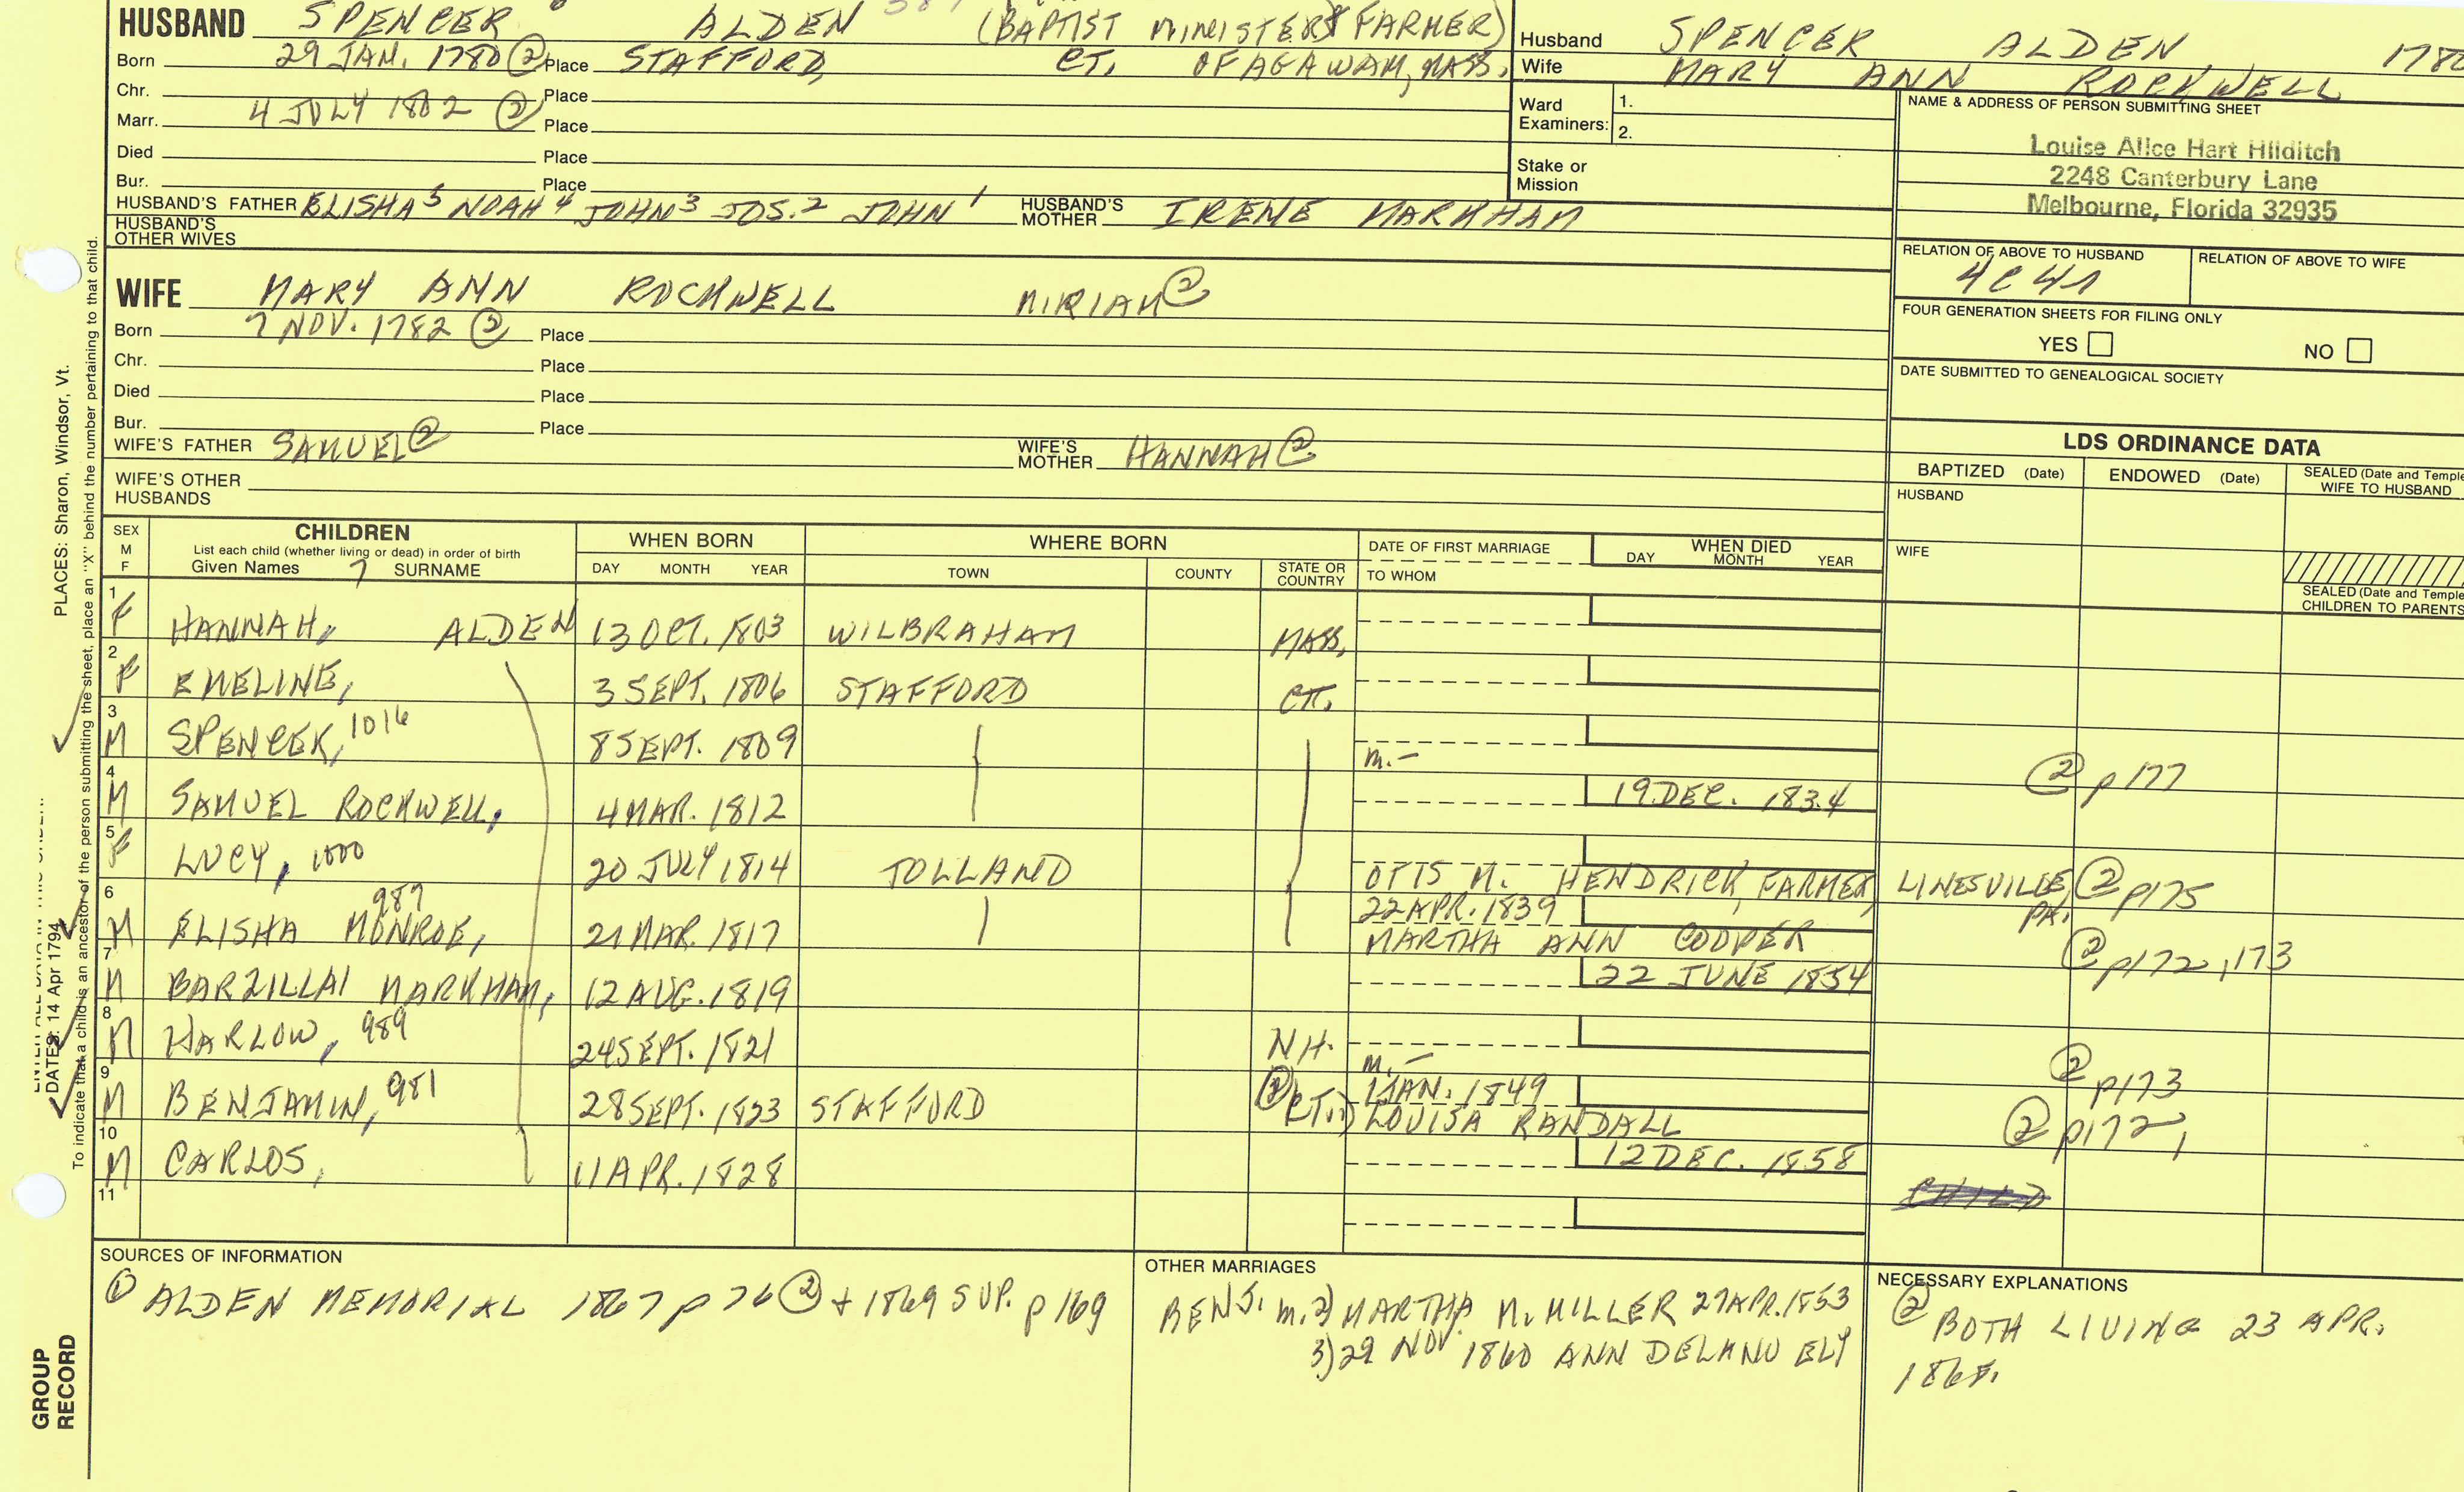 HUSBAND SPENCER ALDEN (BAPTIST MINISTER & FARMER)
Born 29 JAN. 1780 ② Place STAFFORD, CT. OF AGAWAM, MASS.
Chr. Place
Marr. 4 JULY 1802 ② Place
Died Place
Bur. Place
HUSBAND'S FATHER ELISHA 5 NOAH 4 JOHN 3 JOS. 2 JOHN 1 HUSBAND'S MOTHER IRENE MARKHAM
HUSBAND'S OTHER WIVES
WIFE MARY ANN ROCKWELL MIRIAM ②
Born 7 NOV. 1782 ② Place
Chr. Place
Died Place
Bur. Place
WIFE'S FATHER SAMUEL ② WIFE'S MOTHER HANNAH ②
WIFE'S OTHER HUSBANDS
Husband SPENCER ALDEN 1780
Wife MARY ANN ROCKWELL
Ward Examiners: 1.
2.
Stake or Mission
NAME & ADDRESS OF PERSON SUBMITTING SHEET
Louise Alice Hart Hilditch
2248 Canterbury Lane
Melbourne, Florida 32935
RELATION OF ABOVE TO HUSBAND RELATION OF ABOVE TO WIFE
FOUR GENERATION SHEETS FOR FILING ONLY
YES NO
DATE SUBMITTED TO GENEALOGICAL SOCIETY
LDS ORDINANCE DATA
BAPTIZED (Date) ENDOWED (Date) SEALED (Date and Temple WIFE TO HUSBAND
HUSBAND
WIFE
SEALED (Date and Temple
CHILDREN TO PARENTS
SEX M F CHILDREN WHEN BORN WHERE BORN DATE OF FIRST MARRIAGE WHEN DIED
List each child (whether living or dead) in order of birth
Given Names 7 SURNAME DAY MONTH YEAR TOWN COUNTY STATE OR COUNTRY TO WHOM DAY MONTH YEAR
1 F HANNAH, ALDEN 13 OCT. 1803 WILBRAHAM MASS.
2 F EMELINE, 3 SEPT. 1806 STAFFORD CT.
3 M SPENCER, 1016 8 SEPT. 1809 m.- ② p177
4 M SAMUEL ROCKWELL, 4 MAR. 1812 19 DEC. 1834
5 F LUCY, 1000 20 JULY 1814 TOLLAND OTIS M. HENDRICK, FARMER, LINESVILLE, PA. ② p175
6 M ELISHA MONROE, 987 21 MAR. 1817 22 APR. 1839 MARTHA ANN COOPER ② p172, 173
7 M BARZILLAI MARKHAM, 12 AUG. 1819 22 JUNE 1854
8 M HARLOW, 989 24 SEPT. 1821 N.H. m.- ② p173
9 M BENJAMIN, 981 28 SEPT. 1823 STAFFORD ② CT. 1) 1 JAN. 1849 LOUISA RANDALL ② p172,
10 M CARLOS, 11 APR. 1828 12 DEC. 1858
CHILD
11
SOURCES OF INFORMATION
① ALDEN MEMORIAL 1867 p 76 ② + 1869 SUP. p 169
OTHER MARRIAGES
BENJ. m. 2) MARTHA M. MILLER 27 APR. 1853
3) 29 NOV. 1860 ANN DELANO ELY
NECESSARY EXPLANATIONS
② BOTH LIVING 23 APR.
PLACES: Sharon, Windsor, Vt.
DATES: 14 Apr 1794
To indicate that a child is an ancestor of the person submitting the sheet, place an "X" behind the number pertaining to that child.
GROUP
RECORD